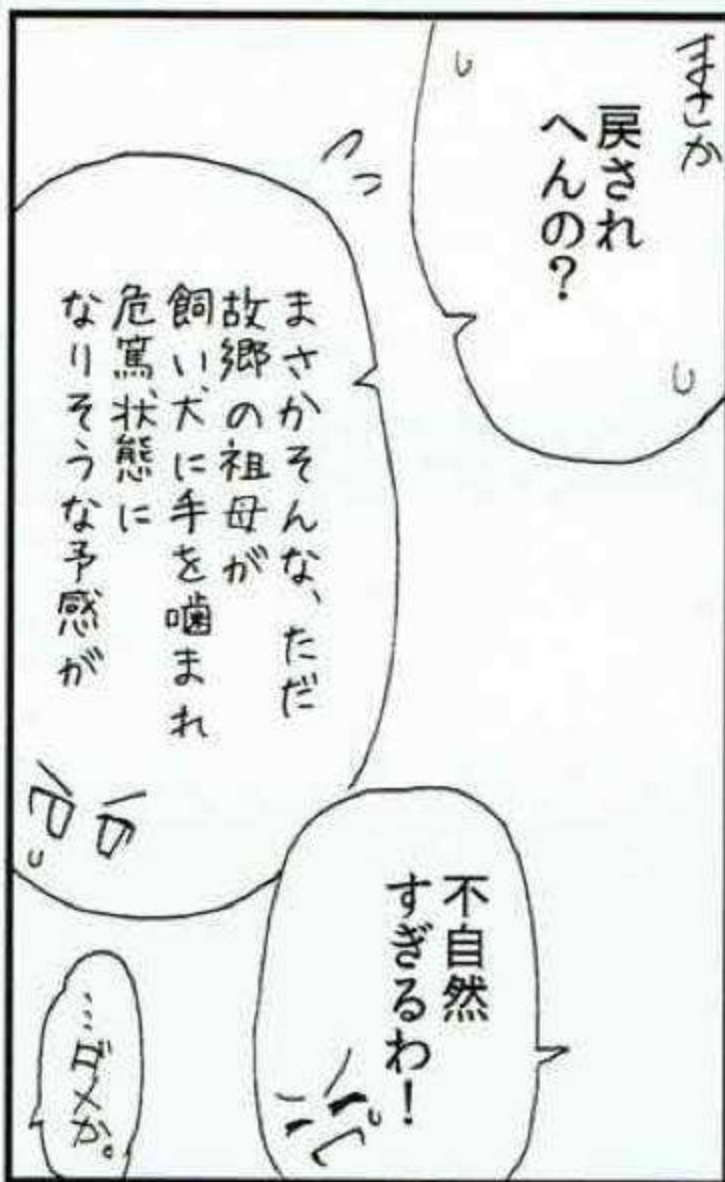 まさか
戻され
へんの?
まさかそんな、ただ
故郷の祖母が
飼い犬に手を噛まれ
危篤状態に
なりそうな予感が
不自然
すぎるわ!
…ダメか。